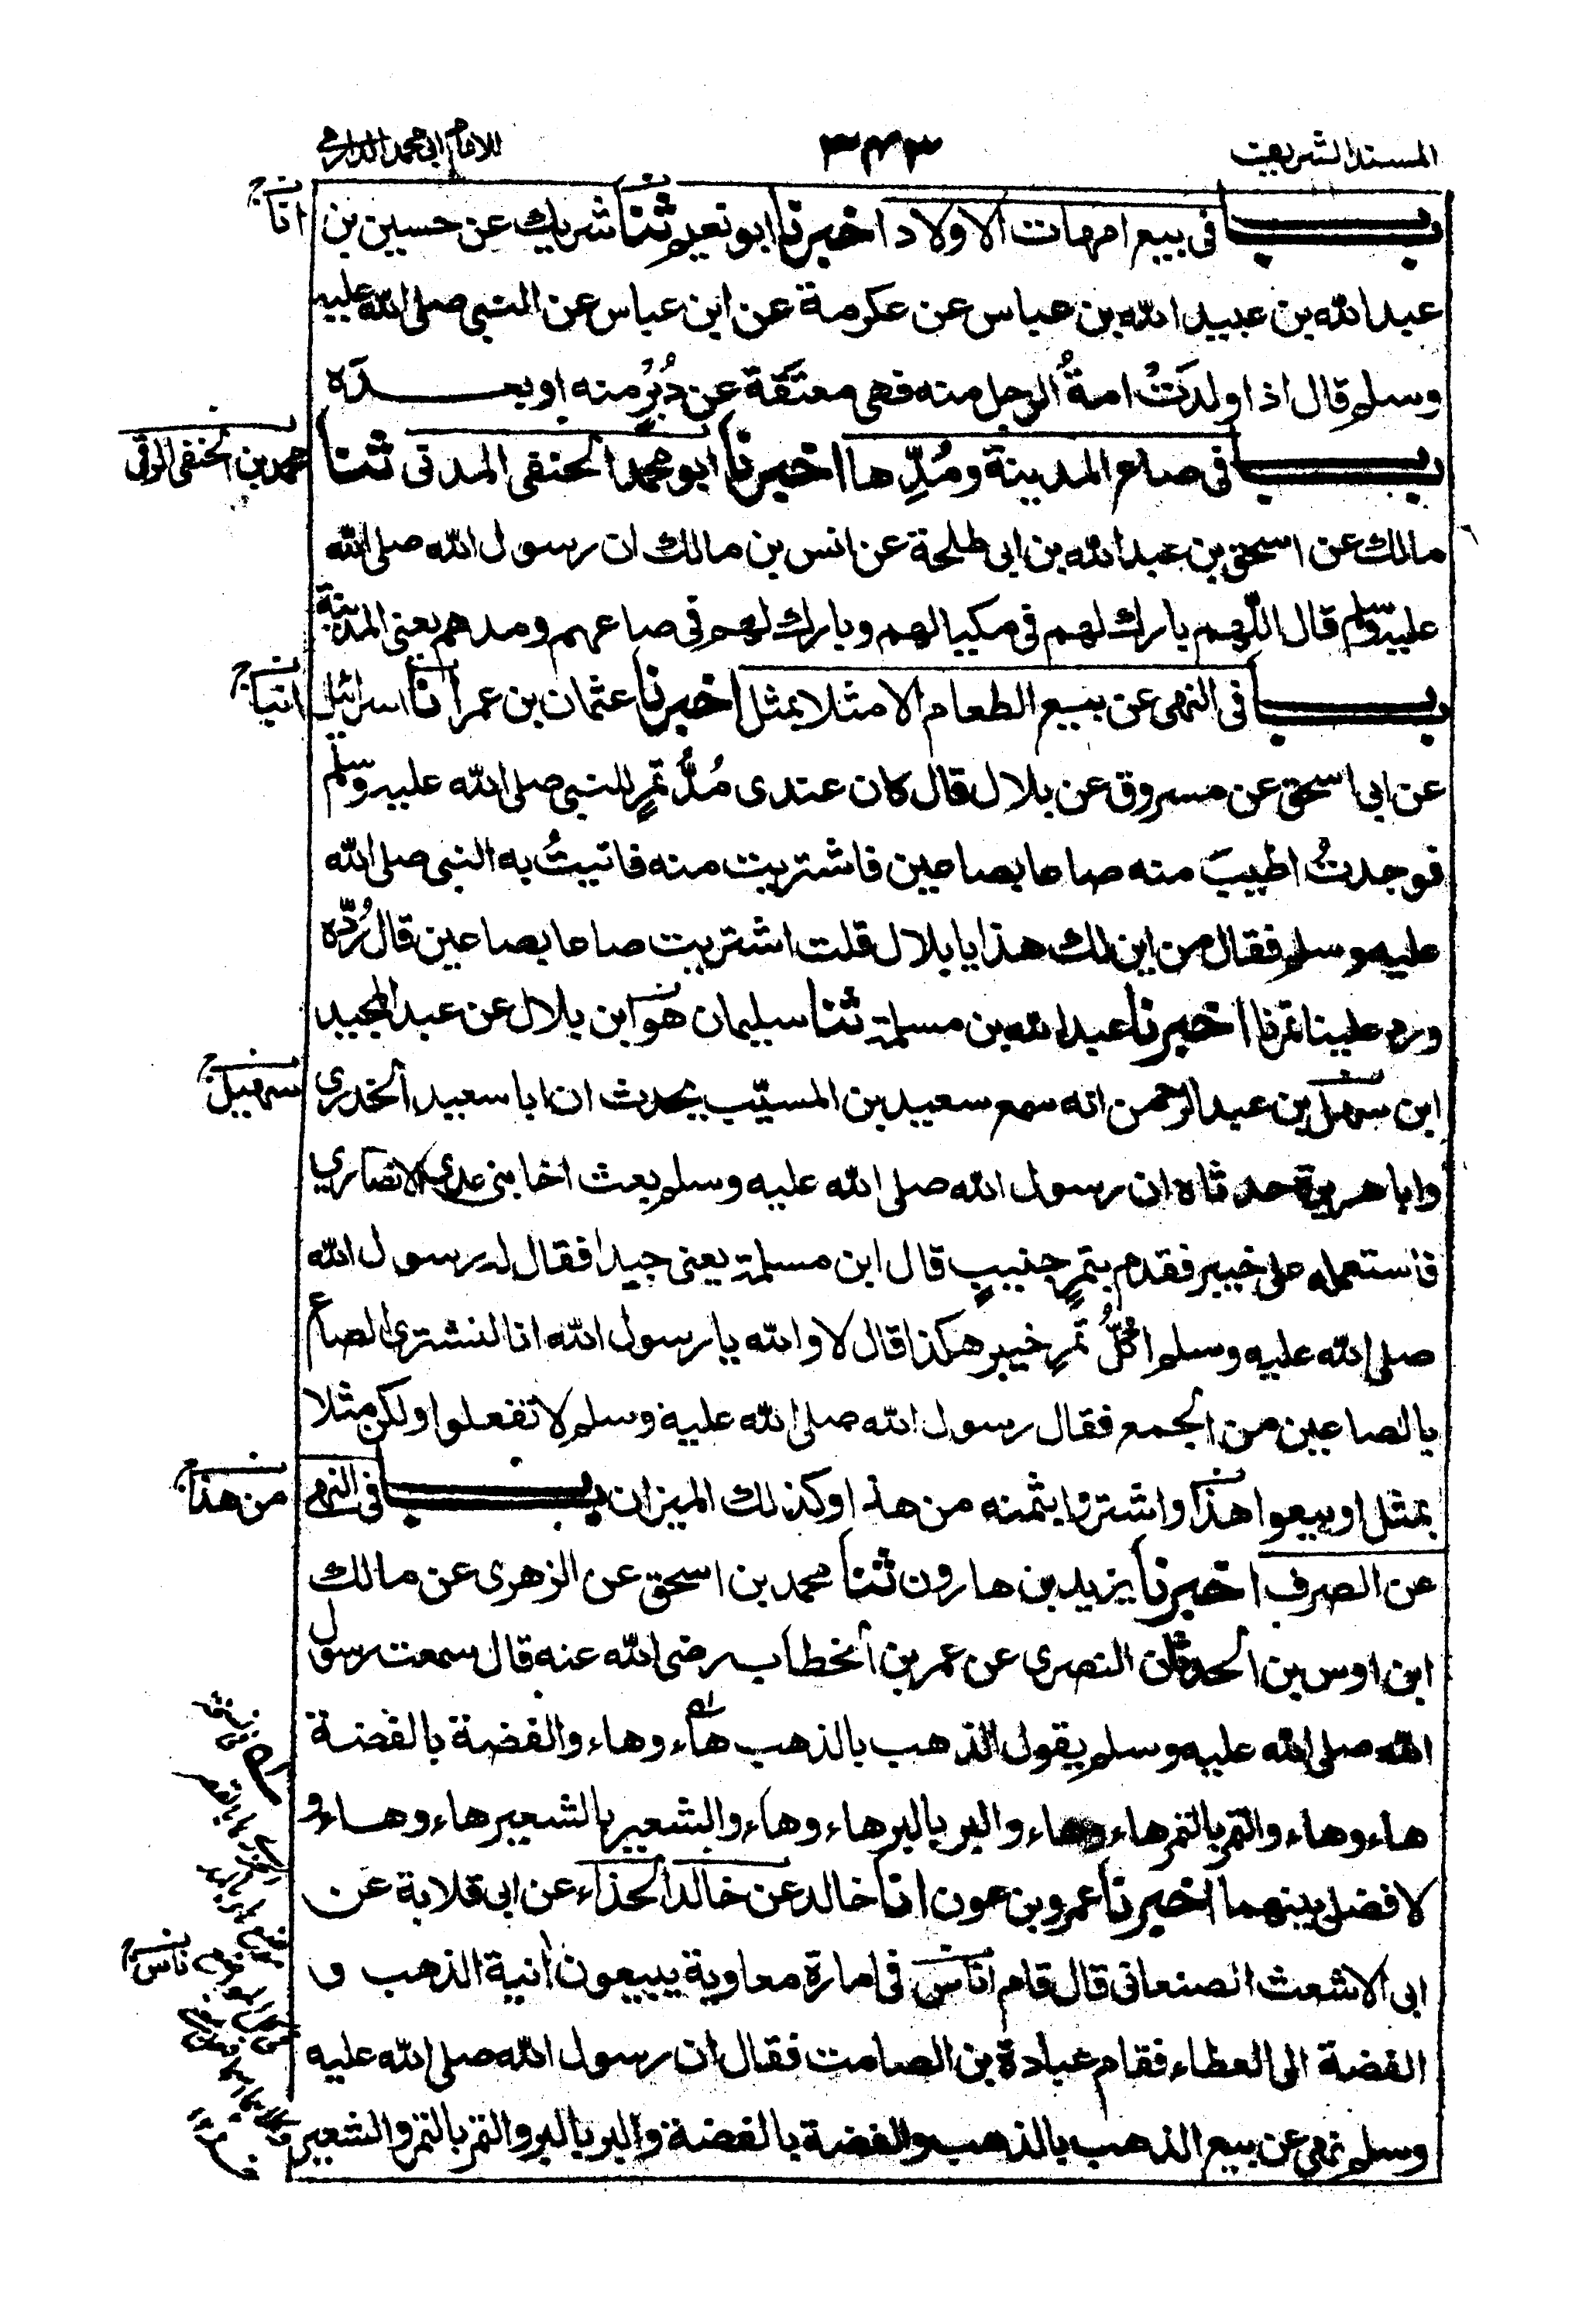 المسند الشريف
٣٤٣
للامام ابى محمد الدارمي
باب فى بيع امهات الاولاد اخبرنا ابو نعيم ثنا شريك عن حسين بن
انا
عبد الله بن عبيد الله بن عباس عن عكرمة عن ابن عباس عن النبى صلى الله عليه
وسلم قال اذا ولدَتْ امةُ الرجل منه فهى معتَقَة عن دُبُرٍ منه او بعدَه
باب فى صاع المدينة ومُدِّها اخبرنا ابو محمد الحنفى المدنى ثنا
محمد بن الحنفى الرقى
مالك عن اسحق بن عبد الله بن ابى طلحة عن انس بن مالك ان رسول الله صلى الله
عليه وسلم قال اللّهم بارك لهم فى مكيالهم وبارك لهم فى صاعهم ومدهم يعنى المدينة
باب فى النهى عن بيع الطعام الا مثلا بمثل اخبرنا عثمان بن عمر انا اسرائيل
انبا
عن ابى اسحق عن مسروق عن بلال قال كان عندى مُدُّ تمرٍ للنبى صلى الله عليه وسلم
فوجدتُ اطيبَ منه صاعا بصاعين فاشتريت منه فاتيتُ به النبى صلى الله
عليه وسلم فقال من اين لك هذا يا بلال قلت اشتريت صاعا بصاعين قال رُدّه
ورد علينا تمرنا اخبرنا عبد الله بن مسلمة ثنا سليمان هو ابن بلال عن عبد المجيد
ابن سهل بن عبد الرحمن انه سمع سعيد بن المسيّب يحدث ان ابا سعيد الخدرى
سهيل
وابا هريرة حدثاه ان رسول الله صلى الله عليه وسلم بعث اخا بنى عدى الانصارى
فاستعمله على خيبر فقدم بتمرٍ جنيبٍ قال ابن مسلمة يعنى جيدا فقال له رسول الله
صلى الله عليه وسلم اكُلُّ تمرِ خيبر هكذا قال لا والله يا رسول الله انا لنشترى الصاع
بالصاعين من الجمع فقال رسول الله صلى الله عليه وسلم لا تفعلوا ولكن مثلا
بمثل او بيعوا هذا واشتروا بثمنه من هذا وكذلك الميزان باب فى النهى
من هذا
عن الصرف اخبرنا يزيد بن هارون ثنا محمد بن اسحق عن الزهرى عن مالك
ابن اوس بن الحدثان النصرى عن عمر بن الخطاب رضى الله عنه قال سمعت رسول
الله صلى الله عليه وسلم يقول الذهب بالذهب هاء وهاء والفضة بالفضة
هاء وهاء والتمر بالتمر هاء وهاء والبر بالبر هاء وهاء والشعير بالشعير هاء وهاء و
لا فضل بينهما اخبرنا عمرو بن عون انا خالد عن خالد الحذاء عن ابى قلابة عن
ابى الاشعث الصنعانى قال قام اناس فى امارة معاوية يبيعون انية الذهب و
ناس
الفضة الى العطاء فقام عبادة بن الصامت فقال ان رسول الله صلى الله عليه
وسلم نهى عن بيع الذهب بالذهب والفضة بالفضة والبر بالبر والتمر بالتمر والشعير